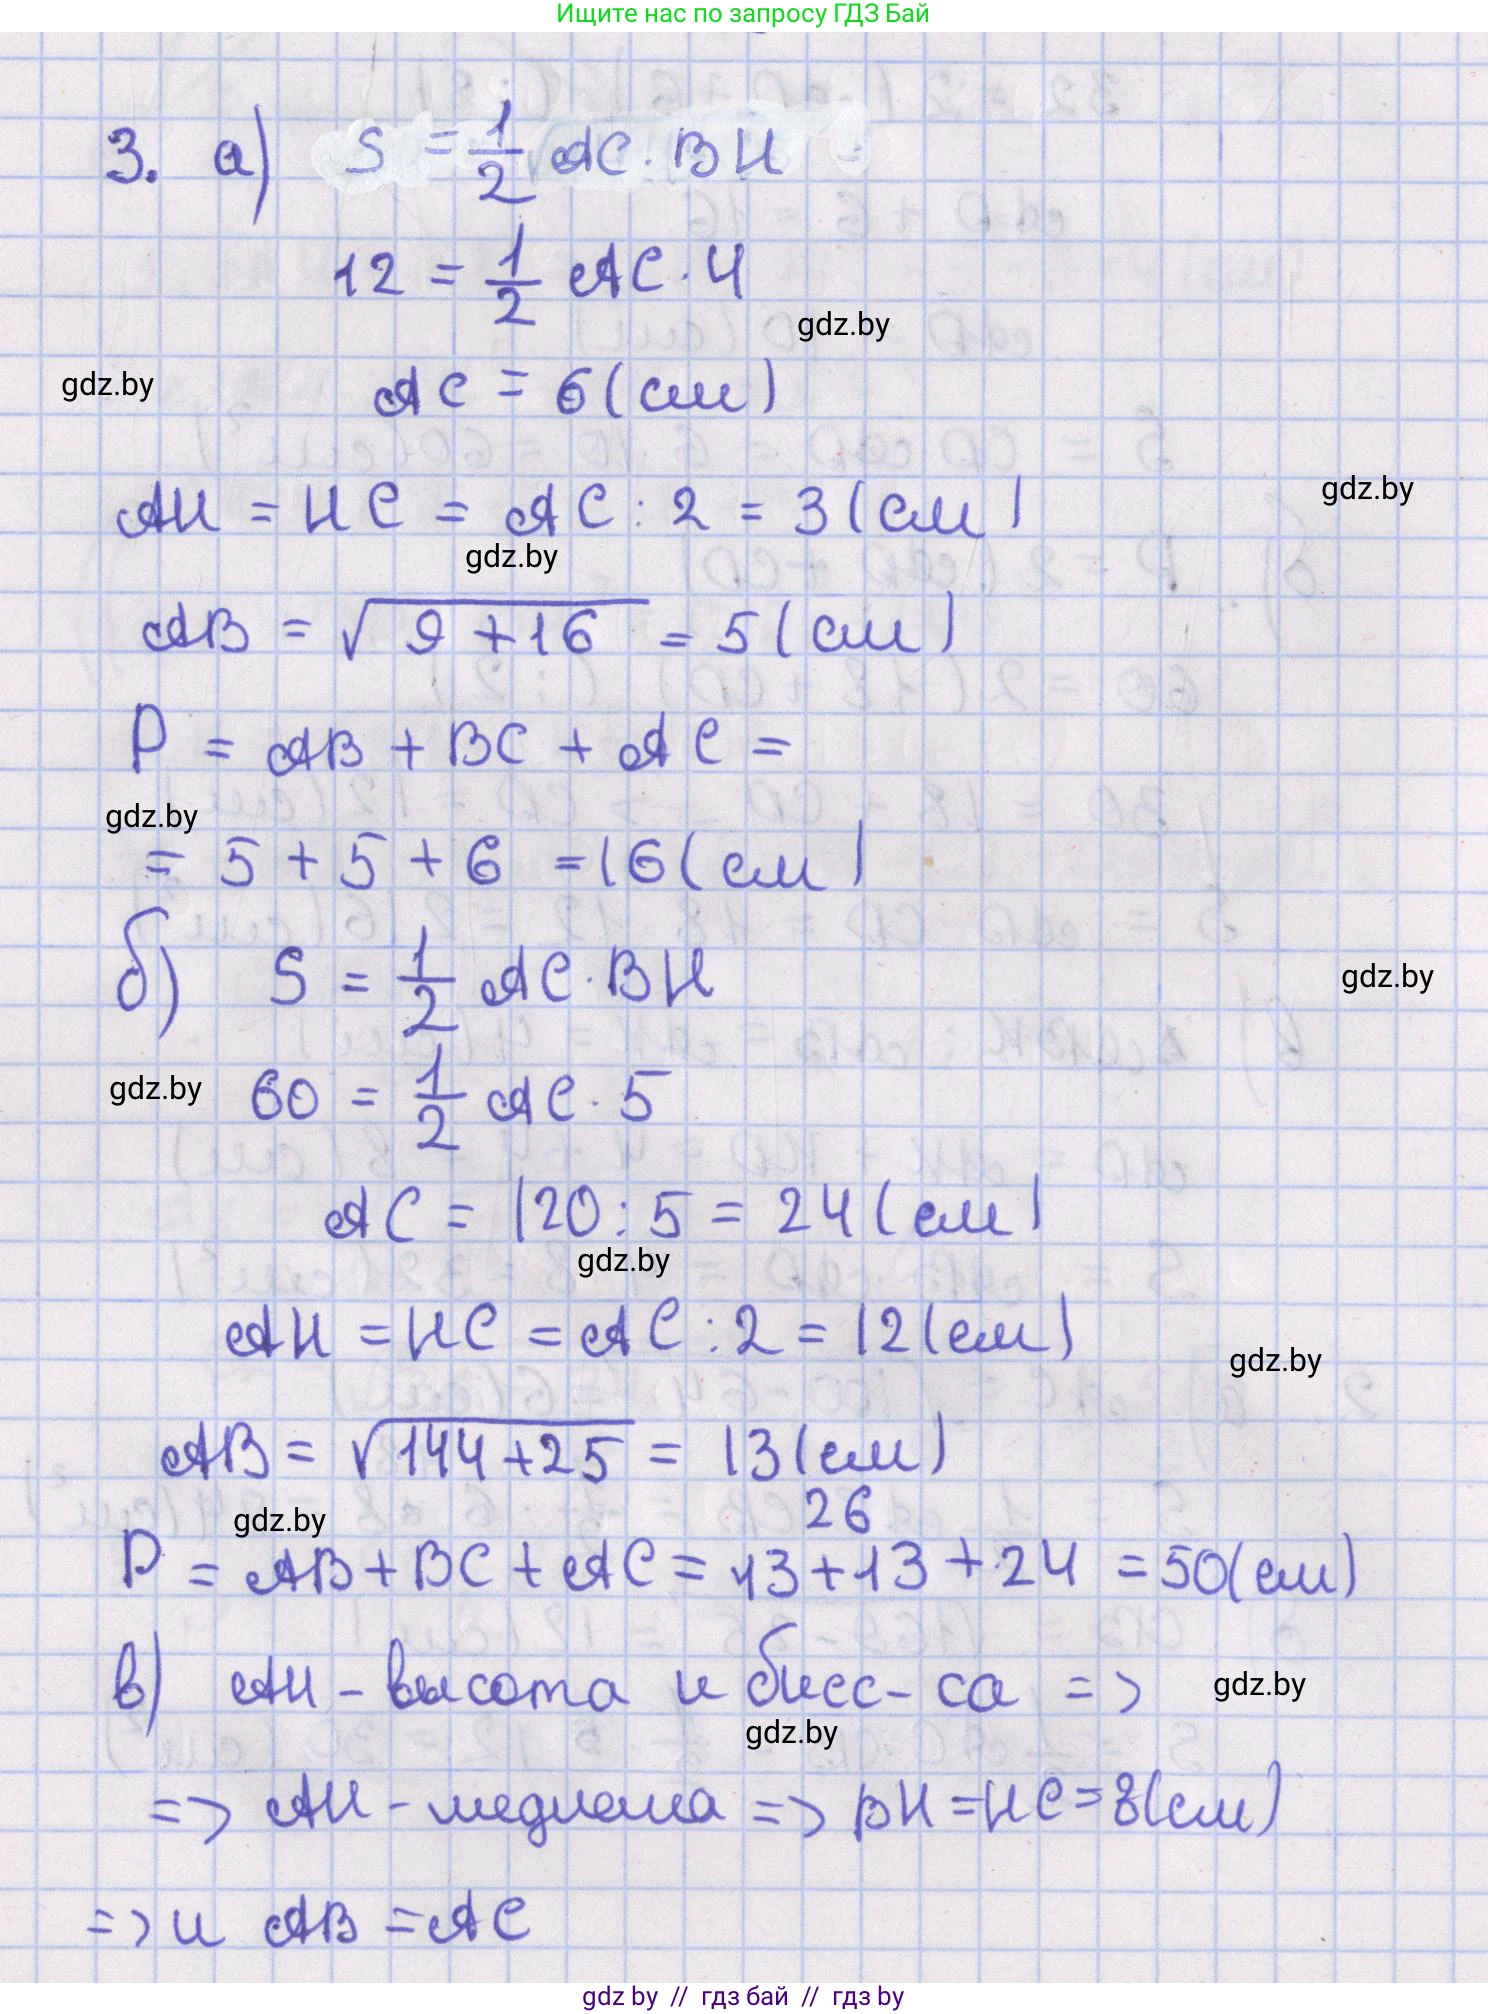 Ищите нас по запросу ГДЗ Бай
3. а) S = 1/2 AC · BH =
12 = 1/2 AC · 4
gdz.by
AC = 6 (см)
gdz.by
gdz.by
AH = HC = AC : 2 = 3 (см)
gdz.by
AB = √(9 + 16) = 5 (см)
P = AB + BC + AC =
gdz.by
= 5 + 5 + 6 = 16 (см)
б) S = 1/2 AC · BH
gdz.by
gdz.by
60 = 1/2 AC · 5
AC = 120 : 5 = 24 (см)
gdz.by
AH = HC = AC : 2 = 12 (см)
gdz.by
AB = √(144 + 25) = 13 (см)
26
gdz.by
P = AB + BC + AC = 13 + 13 + 24 = 50 (см)
в) AH - высота и бисс-са =>
gdz.by
gdz.by
=> AH - медиана => BH = HC = 8 (см)
=> и AB = AC
gdz by // гдз бай // гдз by